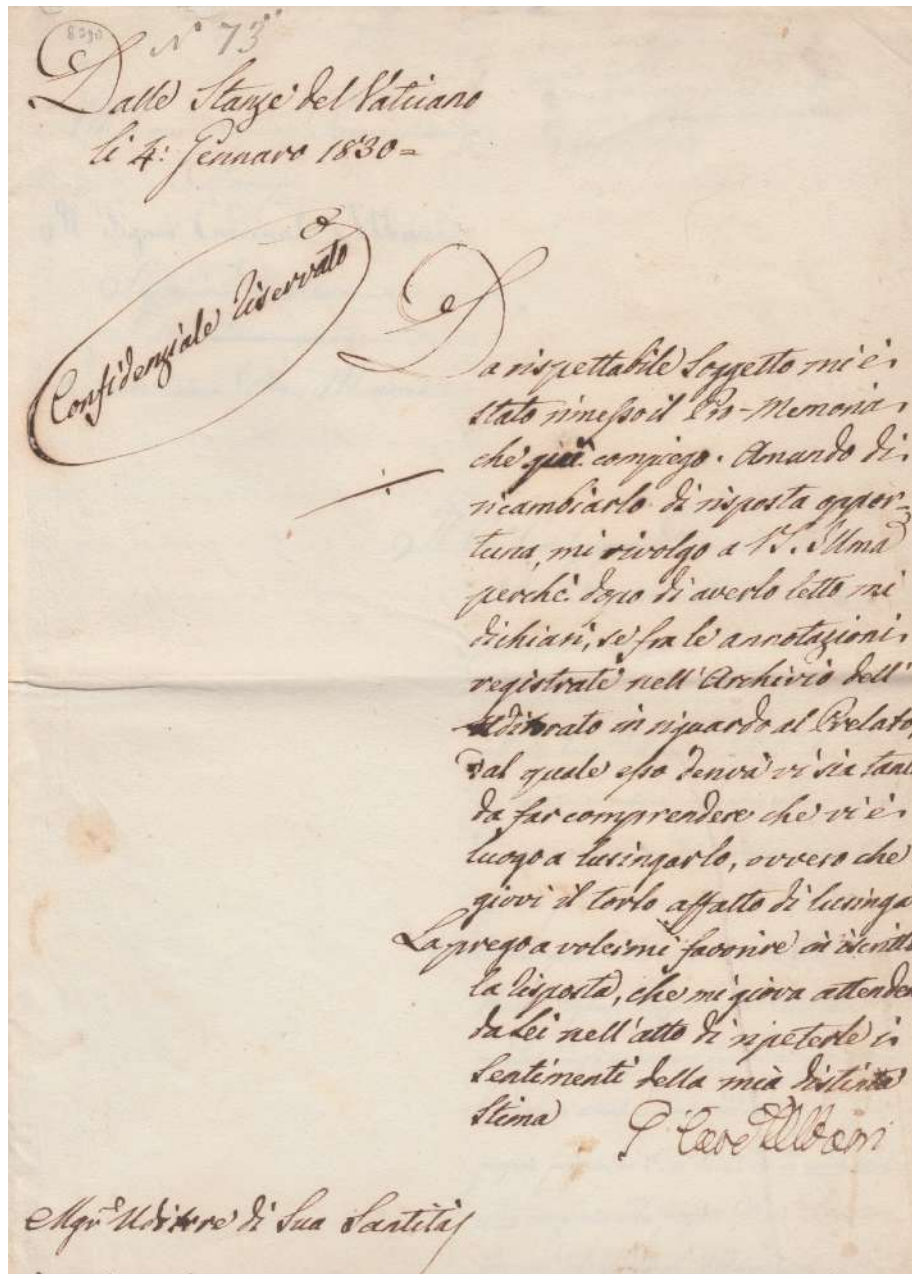 8290
N° 73
Dalle Stanze del Vaticano
li 4: Gennaro 1830=
Confidenziale Riservato
Da rispettabile Soggetto mi è
stato rimesso il Pro-Memoria
che quì compiego. Amando di
ricambiarlo di risposta oppor=
tuna, mi rivolgo a V. S. Illma
perchè dopo di averlo letto mi
dichiari, se fra le annotazioni
registrate nell'Archivio dell'
Uditorato in riguardo al Prelato,
dal quale esso deriva vi sia tant
da far comprendere che vi è
luogo a lusingarlo, ovvero che
giovi il torlo affatto di lusinga
La prego a volermi favorire in iscritto
la risposta, che mi giova attender
da Lei nell'atto di ripeterle i
Sentimenti della mia distinta
Stima
Albani
Mgr Uditore di Sua Santità